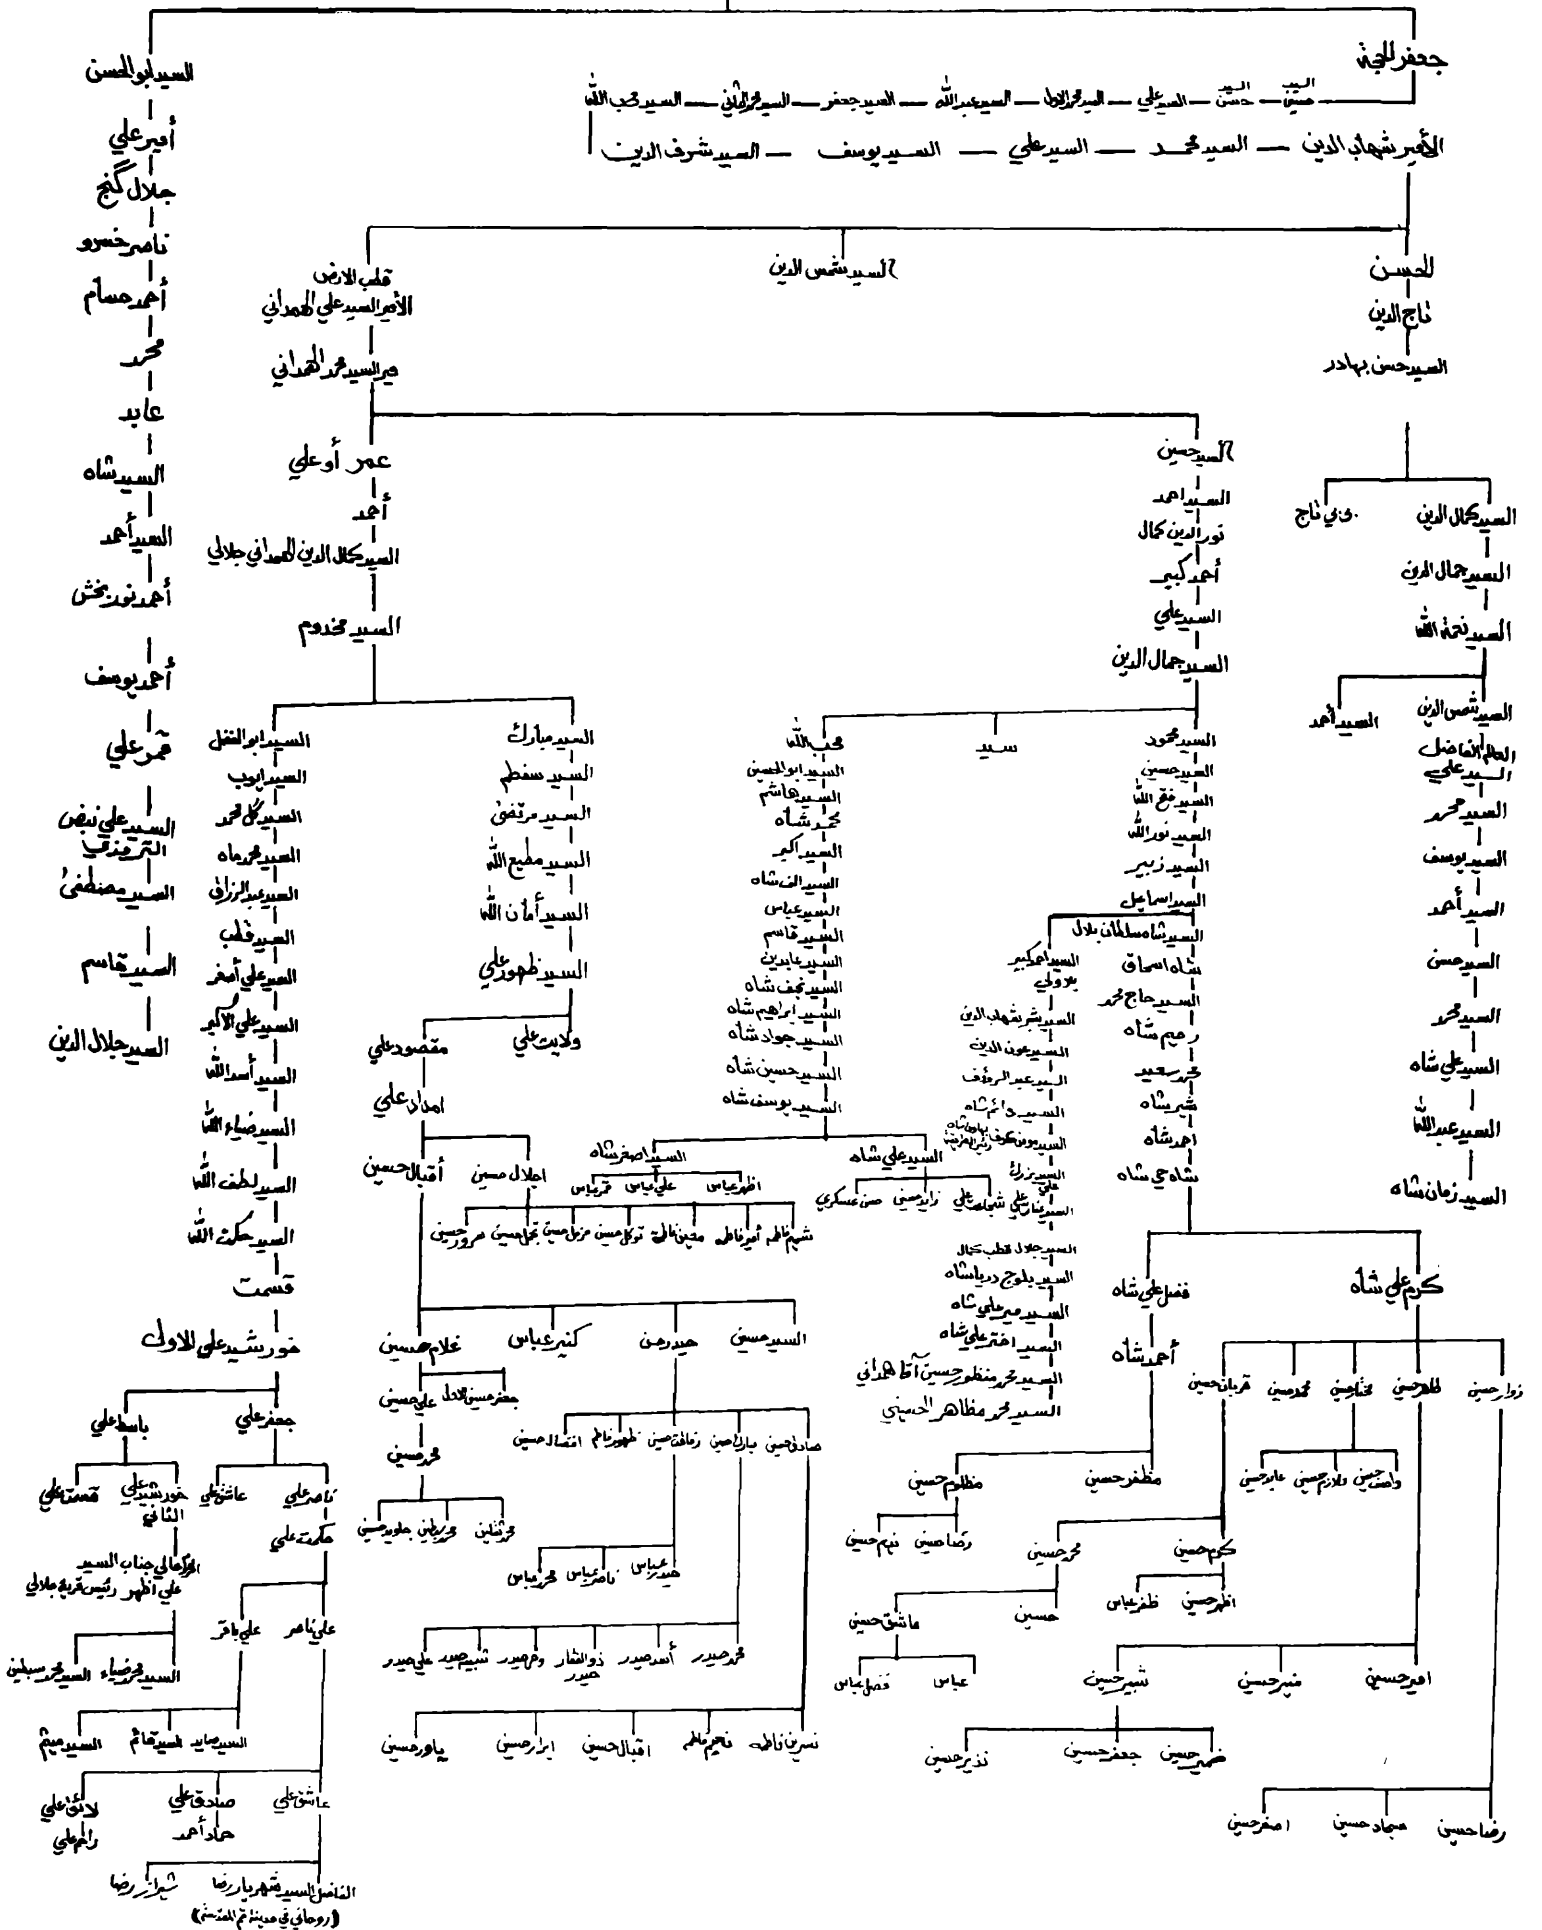 جعفر الحجة
السيد حسين — السيد حسن — السيد علي — السيد محمد الاول — السيد عبدالله — السيد جعفر — السيد محمد الثاني — السيد محب الله
الأمير شهاب الدين — السيد محمد — السيد علي — السيد يوسف — السيد شرف الدين
الحسن
تاج الدين
السيد حسن بهادر
السيد كمال الدين
بي بي تاج
السيد جمال الدين
السيد نعمة الله
السيد شمس الدين
السيد أحمد
العالم الفاضل
السيد علي
السيد محمد
السيد يوسف
السيد أحمد
السيد حسن
السيد محمد
السيد علي شاه
السيد عبدالله
السيد زمان شاه
السيد شمس الدين
قطب الارض
الأمير السيد علي الهمداني
مير السيد محمد الهمداني
السيد حسين
السيد احمد
نور الدين كمال
أحمد كبير
السيد علي
السيد جمال الدين
السيد محمود
السيد حسين
السيد فتح الله
السيد نور الله
السيد زبير
السيد اسماعيل
السيد شاه سلطان بلال
شاه اسحاق
السيد حاج محمد
رحيم شاه
محمد سعيد
شير شاه
احمد شاه
شاه جي شاه
كرم علي شاه
فضل علي شاه
أحمد شاه
زوار حسين
طاهر حسين
مختار حسين
محمد حسين
قربان حسين
واصف حسين
ملازم حسين
عابد حسين
مظفر حسين
مظلوم حسين
رضا حسين
نديم حسين
كرم حسين
محمد حسين
اظهر حسين
ظفر عباس
حسين
عاشق حسين
عباس
فضل عباس
امير حسين
منير حسين
شبير حسين
ضمير حسين
جعفر حسين
نذير حسين
رضا حسين
سجاد حسين
اصغر حسين
السيد احمد كبير
بلاولي
السيد بشر شهاب الدين
السيد عون الدين
السيد عبد الرؤوف
السيد دائم شاه
السيد بزرك
علي
السيد جلال قطب كمال
السيد بلوچ دريا شاه
السيد مير علي شاه
السيد اختر علي شاه
السيد محمد منظور حسين آقا همداني
السيد محمد مظاهر الحسيني
سيد
محب الله
السيد ابو الحسن
السيد هاشم
محمد شاه
السيد اكبر
السيد الف شاه
السيد عباس
السيد قاسم
السيد عابدين
السيد نجف شاه
السيد ابراهيم شاه
السيد جواد شاه
السيد حسين شاه
السيد يوسف شاه
السيد علي شاه
السيد اصغر شاه
شجاعت علي
زاهد حسين
حسن عسكري
اظهر عباس
علي عباس
قمر عباس
عمر أو علي
أحمد
السيد كمال الدين الهمداني جلالي
السيد مخدوم
السيد مبارك
السيد سفطم
السيد مرتضى
السيد مطيع الله
السيد أمان الله
السيد ظهور علي
ولايت علي
مقصود علي
امداد علي
اجلال حسين
أقبال حسين
شميم فاطمه
أمير فاطمه
معين فاطمة
توكل حسين
مزمل حسين
تجمل حسين
سرور حسين
السيد حسين
حيدر حسن
كنير عباس
غلام حسين
جعفر حسين جلالي
علي حسين
محمد حسين
محمد ثقلين
محمد سبطين
جاويد حسين
صادق حسين
مبارك حسين
رفاقت حسين
ظهور فاطم
افضال حسين
حيدر عباس
ناصر عباس
محمد عباس
محمد حيدر
أسد حيدر
ذو الفقار
حيدر
وصي حيدر
شبيه حيدر
علي حيدر
نسرين فاطمه
نعيم فاطمه
اقبال حسين
ابرار حسين
ياور حسين
السيد ابو الفضل
السيد ايوب
السيد گل محمد
السيد محمد ماه
السيد عبد الرزاق
السيد قطب
السيد علي أصغر
السيد علي الأكبر
السيد أسد الله
السيد ضياء الله
السيد لطف الله
السيد حكمت الله
قسمت
خورشيد علي الاول
جعفر علي
باسط علي
ناصر علي
عاشق علي
خورشيد علي
الثاني
قسمت علي
حكمت علي
عالي جناب السيد
علي اظهر رئيس قرية جلالي
علي ناصر
علي باقر
السيد محمد ضياء
السيد محمد سبطين
السيد صايد
السيد قائم
السيد ميثم
عاشق علي
صادق علي
لائق علي
حماد أحمد
راجم علي
الفاضل السيد شهريار رضا
شيراز رضا
(روحاني في مدينة قم المقدسة)
السيد ابو الحسن
أمير علي
جلال گنج
ناصر خسرو
أحمد حسام
محمد
عابد
السيد شاه
السيد أحمد
أحمد نور بخش
أحمد يوسف
قمر علي
السيد علي نبض
الترمذي
السيد مصطفىٰ
السيد قاسم
السيد جلال الدين